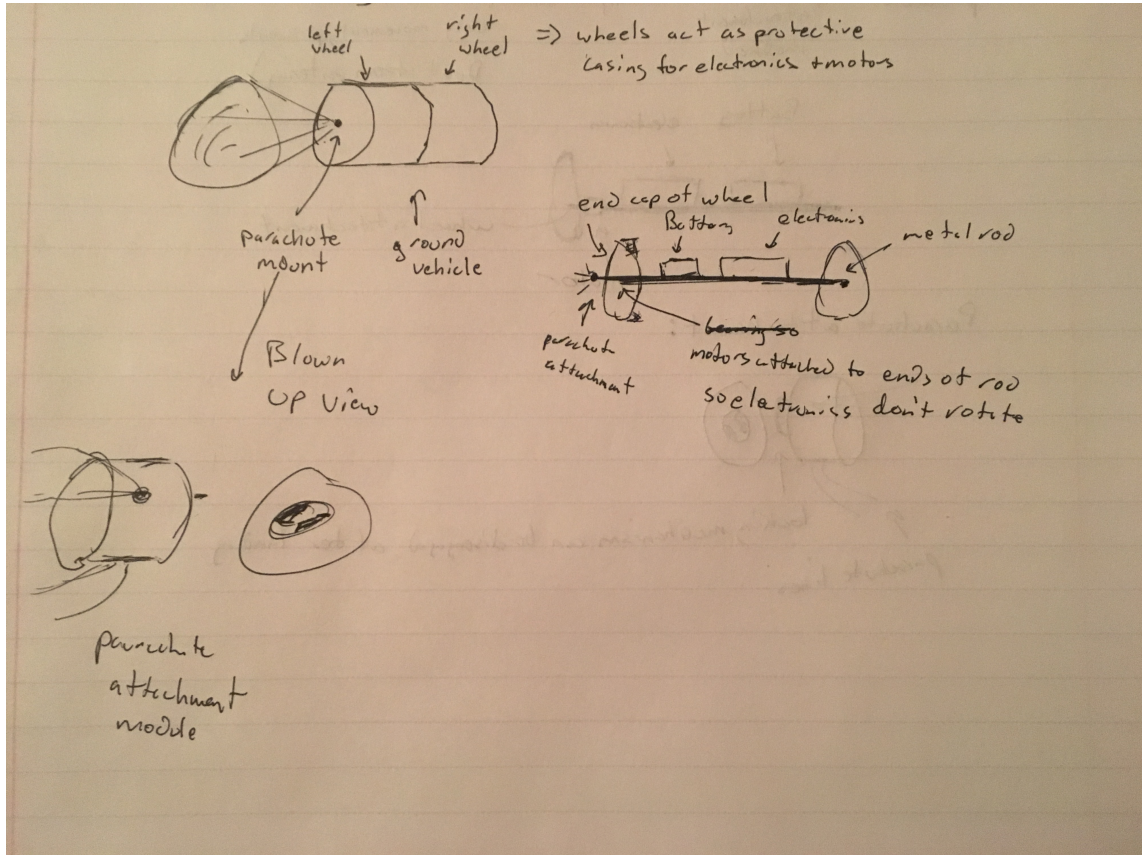 left wheel
right wheel
=> wheels act as protective
casing for electronics + motors
parachute
mount
ground
vehicle
end cap of wheel
Battery
electronics
metal rod
parachute
attachment
bearing so
motors attached to ends of rod
so electronics don't rotate
Blown
up view
parachute
attachment
module